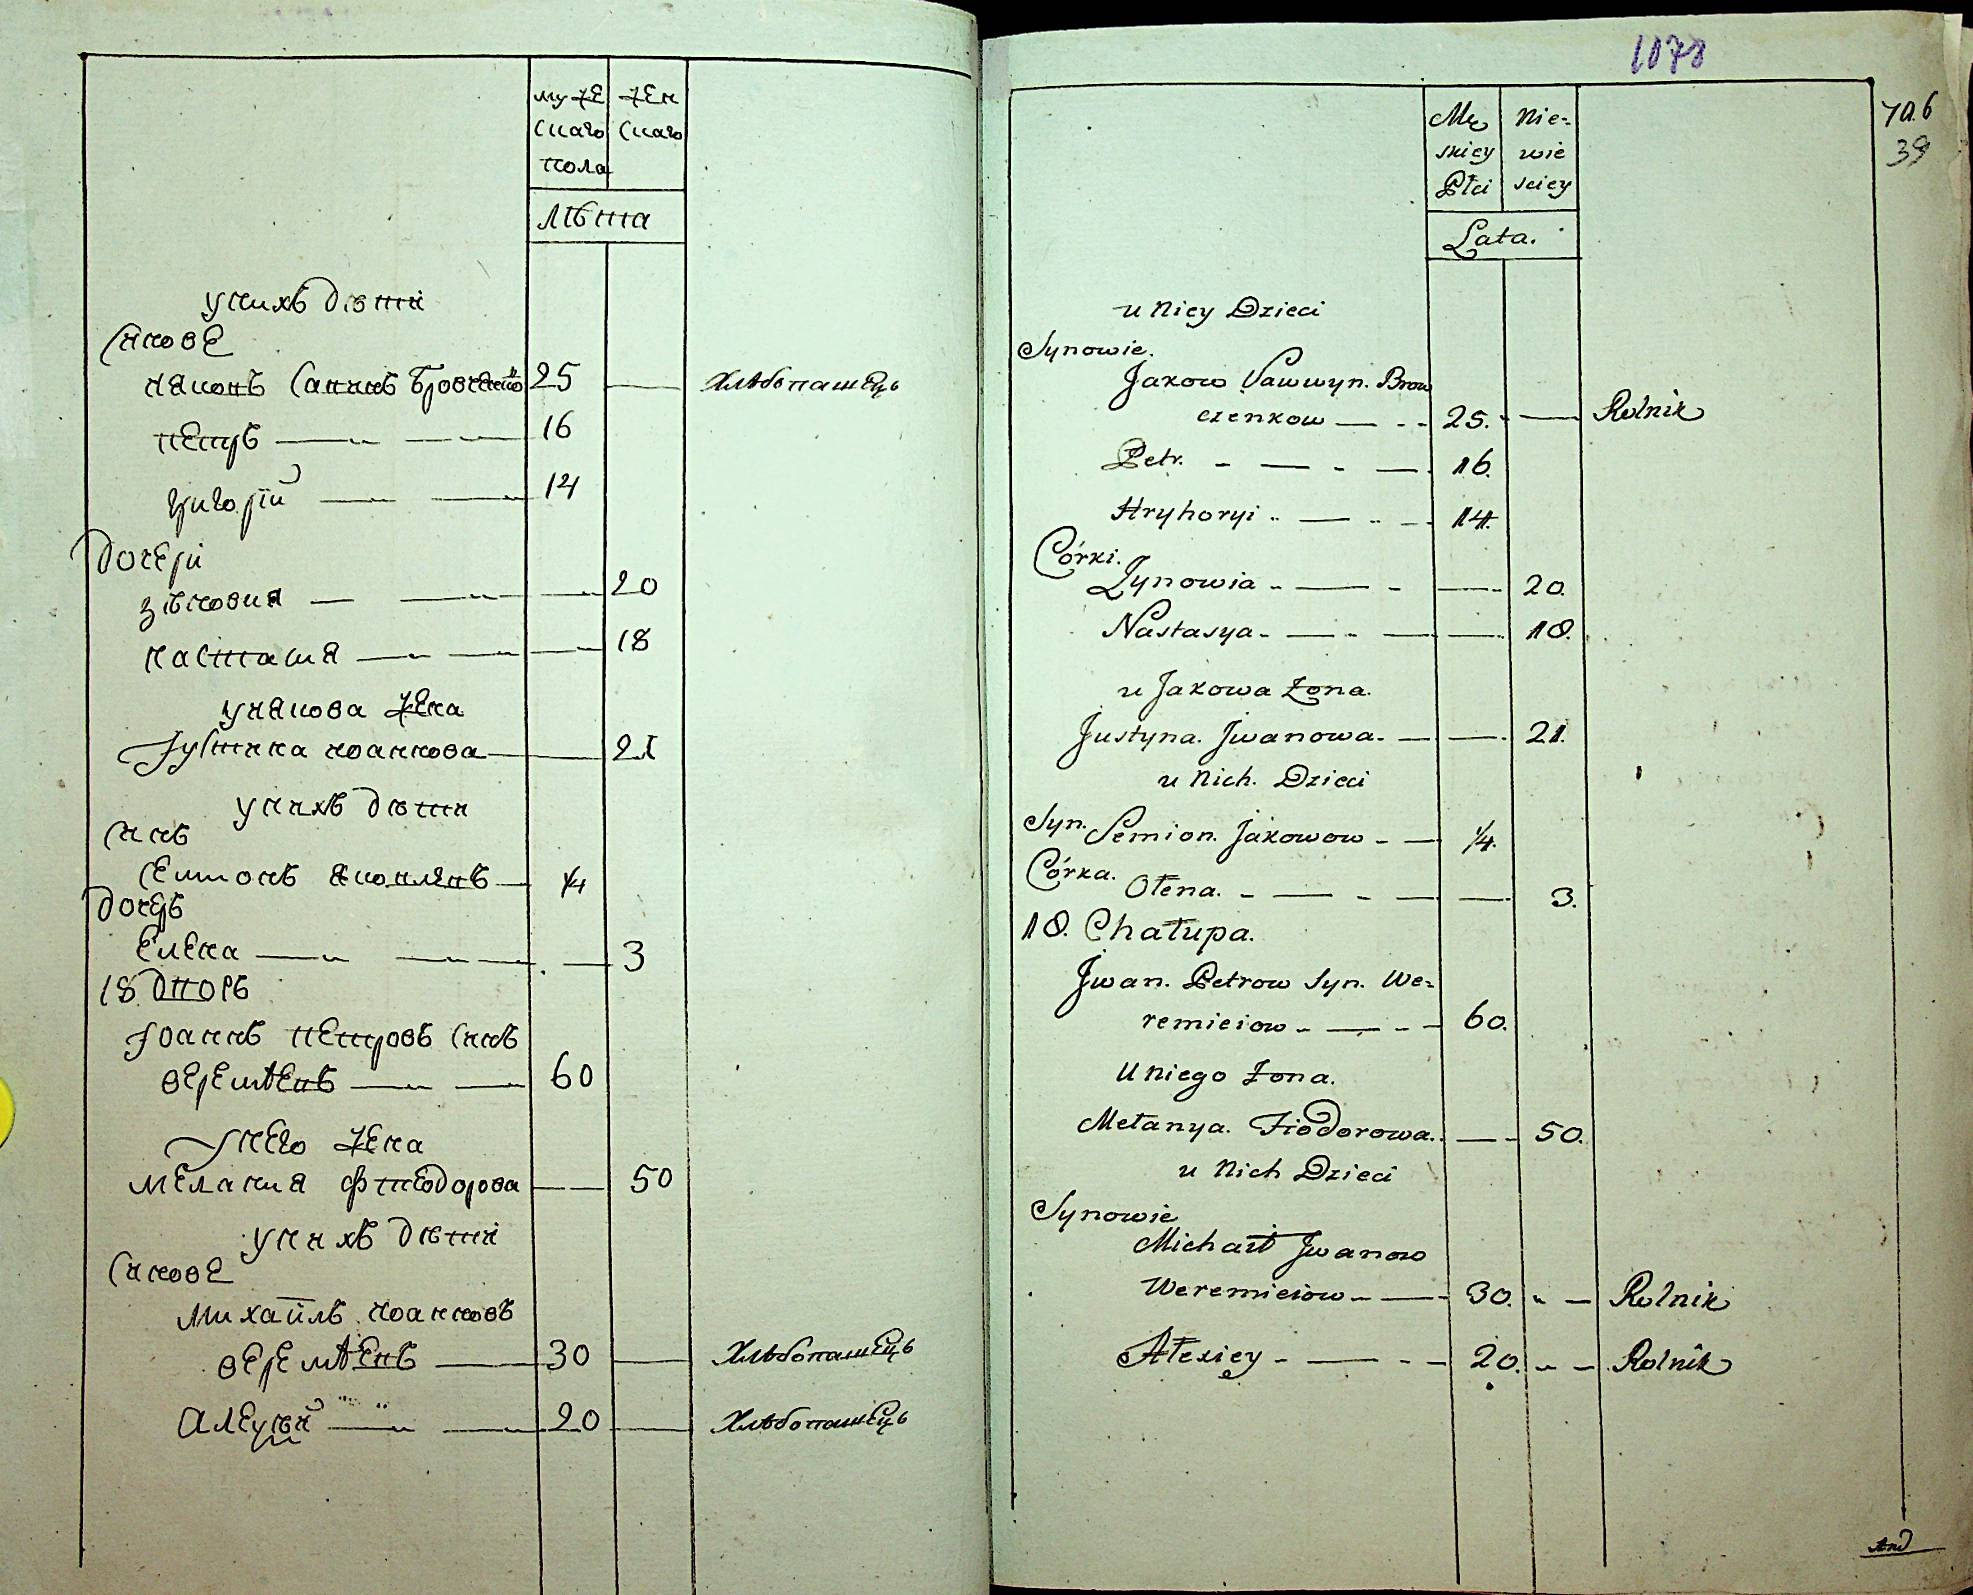 муже жен
скаго скаго
пола
лѣта
у нихъ дѣти
сынове
Иаковъ Савинъ Бровченко 25 — хлѣбопашецъ
петръ — 16
григорій — 14
дочери
зѣновия — 20
настасия — 18
у иакова жена
Іустина иоаннова — 21
у нихъ дѣти
сынъ
семионъ яковлевъ — 1/4
дочеръ
Елена — 3
18 дворъ
Іоаннъ петровъ сынъ
веремѣевъ — 60
у него жена
мелания фтеодорова — 50
у нихъ дѣти
сынове
михаилъ иоанновъ
веремѣевъ — 30 — хлѣбопашецъ
алеѯѣй — 20 — хлѣбопашецъ
1078
Mę Nie-
skiey wie
Płci sciey
Lata.
39
u Niey Dzieci
Synowie.
Jakow Sawwyn. Brow
czenkow — 25. — Rolnik
Petr. — 16.
Hryhoryi — 14.
Córki.
Zynowia — 20.
Nastasya — 18.
u Jakowa Żona.
Justyna. Jwanowa. — 21.
u Nich. Dzieci
Syn. Semion. Jakowow — 1/4.
Córka. Ołena. — 3.
18. Chałupa.
Jwan. Petrow Syn. We-
remieiow — 60.
U niego Żona.
Mełanya. Fiodorowa. — 50.
u Nich Dzieci
Synowie
Michaił Jwanow
Weremieiow — 30. — Rolnik
Ałexiey — 20. — Rolnik